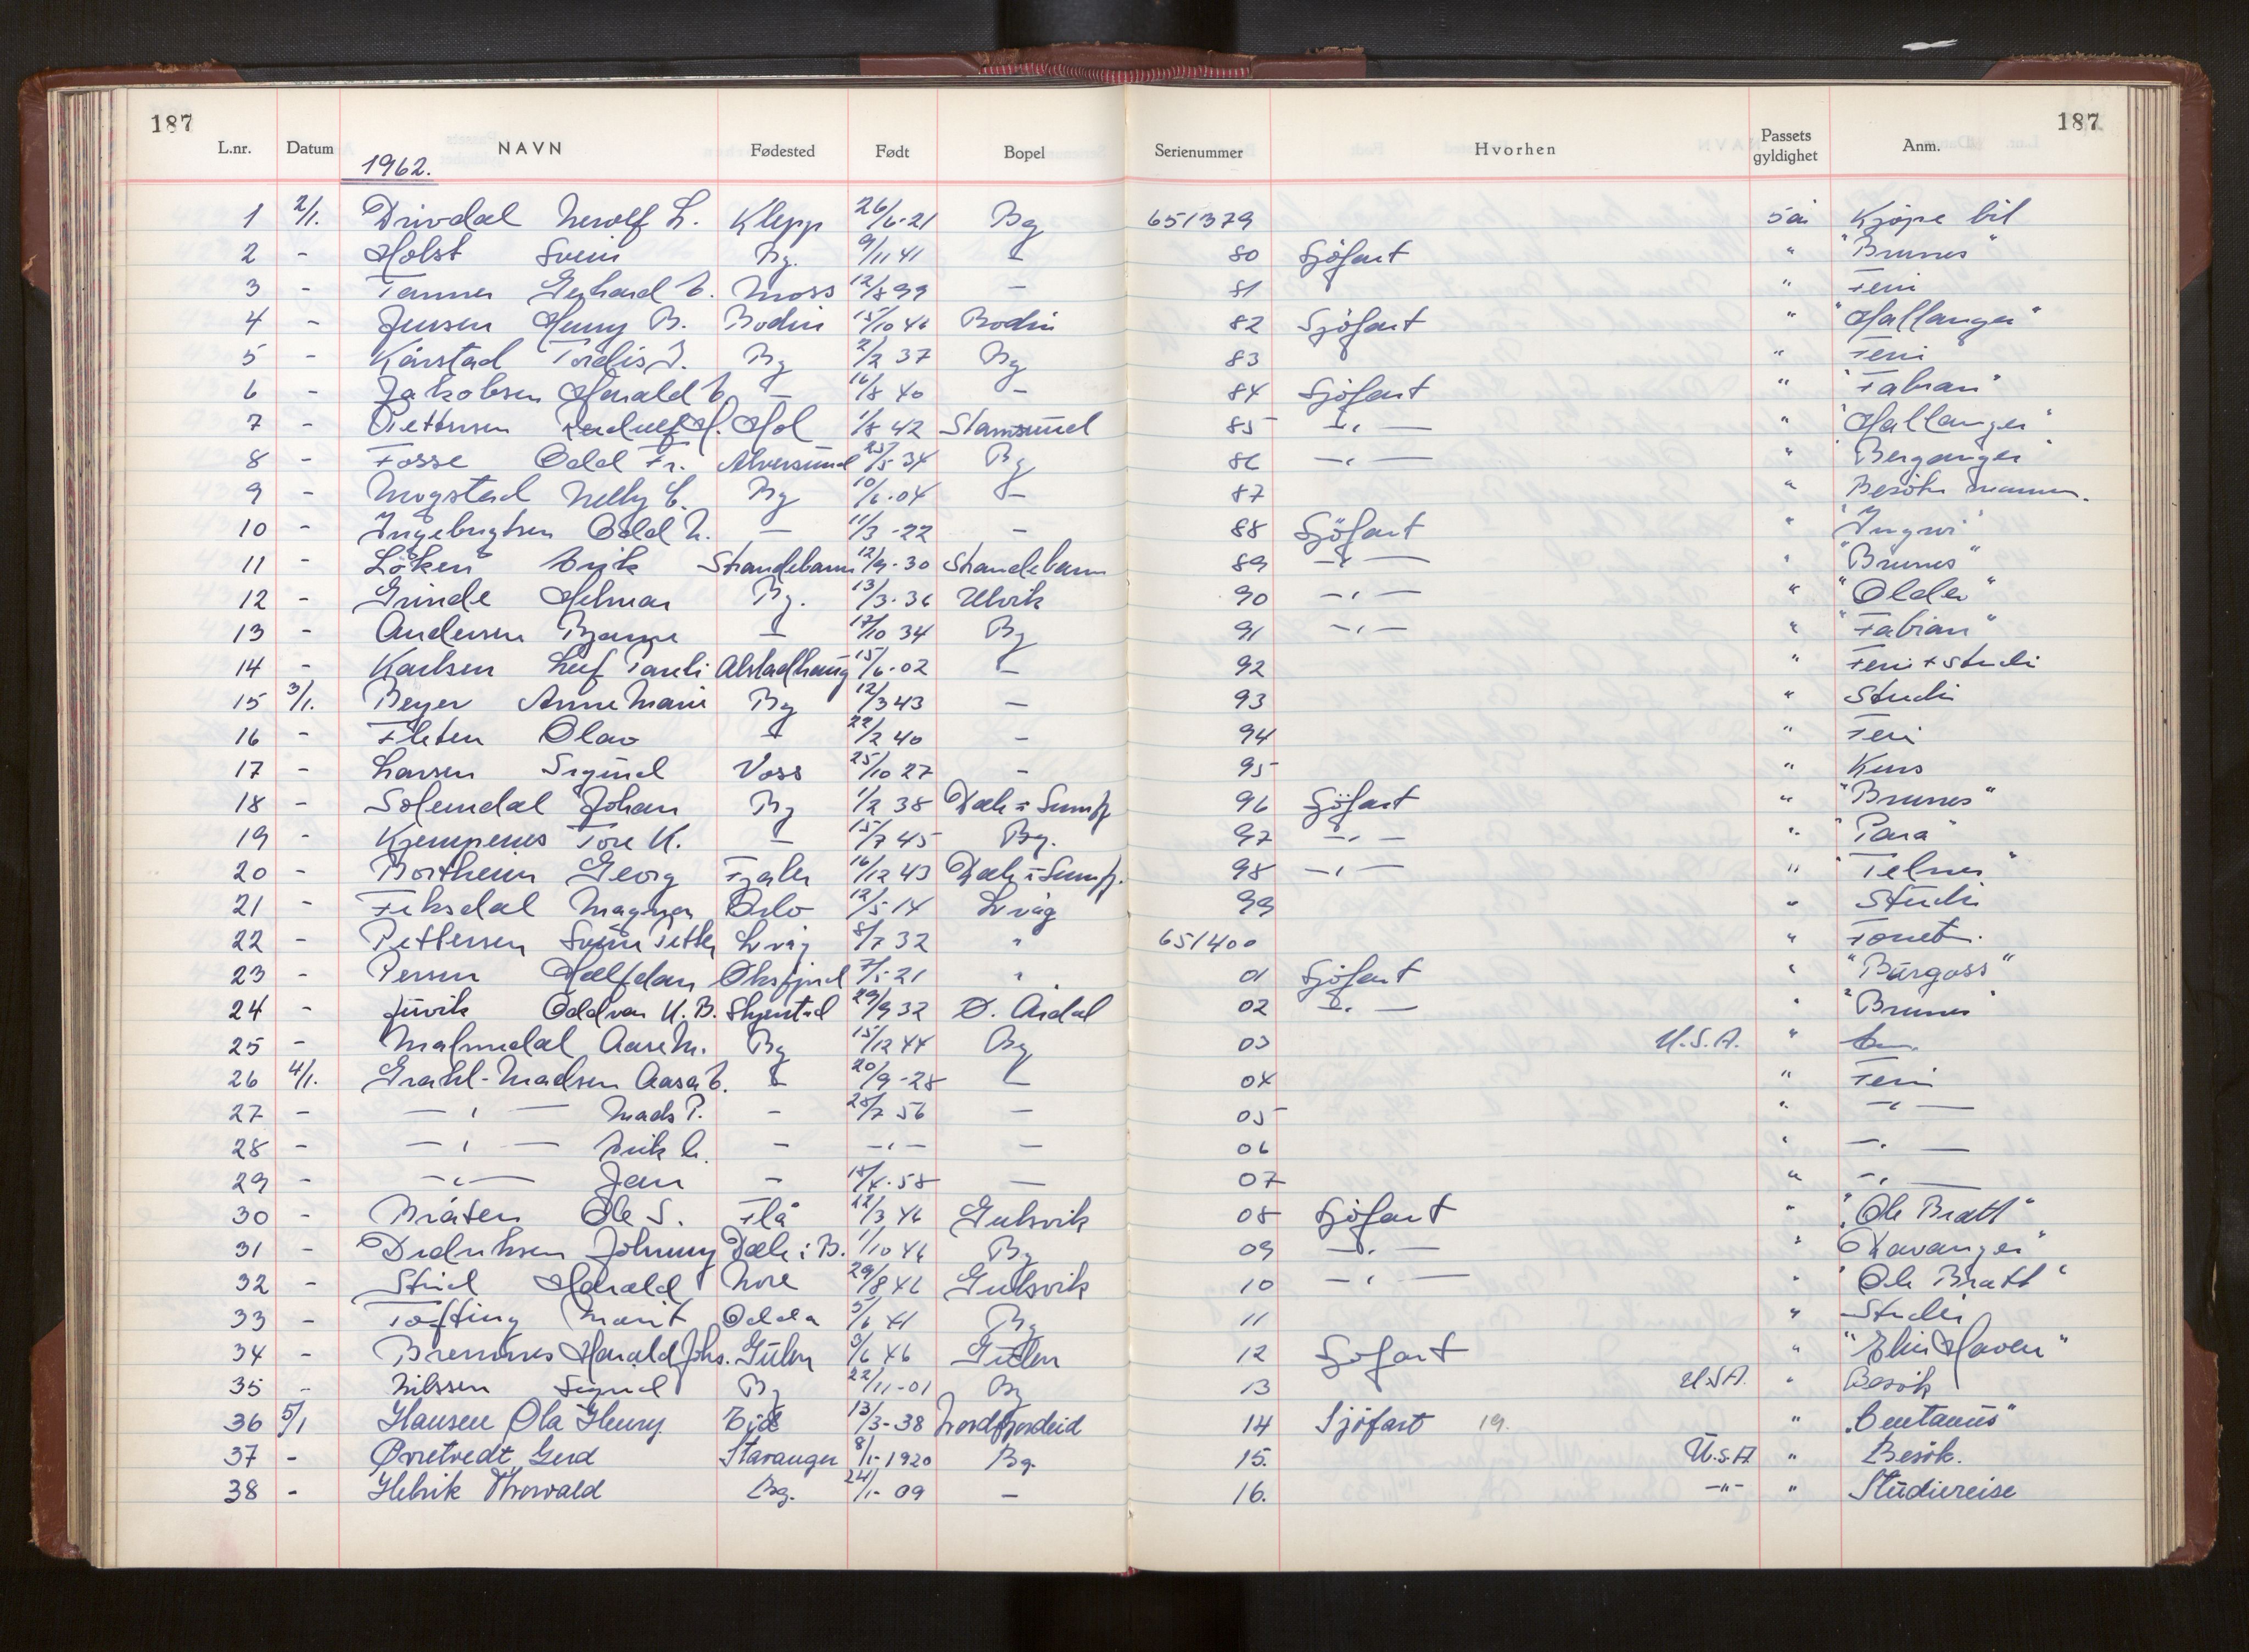 187 187
L.nr. Datum NAVN Fødested Født Bopel Serienummer Hvorhen Passets gyldighet Anm.
1962.
1 2/1. Drivdal L. Klepp 26/6-21 Bg 651379 5 år Kjøpe bil
2 - Holst Svein Bg. 9/11 41 - 80 Sjöfart " "Brunes"
3 - Tanner Gerhard Moss 12/8 99 - 81 " Feri
4 - Jensen Henry B. Bodin 15/10 46 Bodin 82 Sjöfart " "Hallanger"
5 - Kårstad Tordis J. Bg 2/2 37 Bg 83 " Feri
6 - Jakobsen Harald - 16/8 40 - 84 Sjöfart " "Fabian"
7 - Pettersen H. Hol 1/8 42 Stamsund 85 -"- " "Hallanger"
8 - Fosse Odd Fr. Alversund 25/5 34 Bg 86 -"- " "Berganger"
9 - Mogstad Nelly C. Bg 10/6-04 - 87 " Besöke mannen.
10 - Ingebrigtsen Odd N. - 11/3-22 - 88 Sjöfart " "Ingwi"
11 - Löken Erik Strandebarm 12/9-30 Strandebarm 89 -"- " "Brunes"
12 - Grinde Helmar Bg. 13/3-36 Ulvik 90 -"- " "Older"
13 - Andersen Bjarne - 17/10 34 Bg 91 -"- " "Fabian"
14 - Karlsen Leif Pareli Alstadhaug 15/6-02 - 92 " Feri + Studi
15 3/1. Beyer Anne Marie Bg 12/3 43 - 93 " Studi
16 - Fleten Olav - 22/2 40 - 94 " Feri
17 - Larsen Sigurd Voss 25/10 27 - 95 " Kurs
18 - Solemdal Johan Bg 1/2 38 Dale i Sunnfj 96 Sjöfart " "Brunes"
19 - Kjempenes Tore K. - 15/7 45 Bg. 97 -"- " "Para"
20 - Bortheim Georg Fjaler 16/12 43 Dale i Sunnfj. 98 -"- " "Telnes"
21 - Feksdal Magnar Oslo 12/5-14 Lvåg 99 " Studi
22 - Pettersen Svein Petter Lvåg 8/7 32 " 651400 " Forret.
23 - Persen Halfdan Øksfjord 7/5-21 " 01 Sjöfart " "Burgoss"
24 - Juvik Oddvar K.B. Skjerstad 29/9 32 Ø. Årdal 02 -"- " "Brunes"
25 - Malmedal Aase M. Bg 15/12 44 Bg 03 U.S.A. "
26 4/1. Grahl-Madsen Aasa - 20/9-28 - 04 " Feri
27 - -"- Mads P. - 28/7 56 - 05 " -"-
28 - -"- Erik - -"- - 06 " -"-
29 - -"- Jan - 18/4-58 - 07 " -"-
30 - Bråten Ole S. Flå 22/3 46 Gulsvik 08 Sjöfart " "Ole Bratt"
31 - Dideriksen Johnny Dale i B. 1/10 46 Bg 09 -"- " "Davanger"
32 - Strid Harald Nore 29/8 46 Gulsvik 10 -"- " "Ole Bratt"
33 - Tofting Marit Odda 5/6 41 Bg 11 " Studie
34 - Bremnes Harald Johs. Gulen 3/6 46 Gulen 12 Sjöfart " "Elin Haven"
35 - Nilssen Sigurd Bg 22/11-01 Bg 13 U.S.A. " Besök
36 5/1 Hansen Ola Henry Eid 13/3-38 Nordfjordeid 14 Sjöfart 19. " "Centaurus"
37 - Øvretvedt, Gerd Stavanger 8/1-1920 Bg. 15. U.S.A " Besök.
38 - Helvik Thorvald Bg. 24/1-09 - 16. -"- " Studiereise